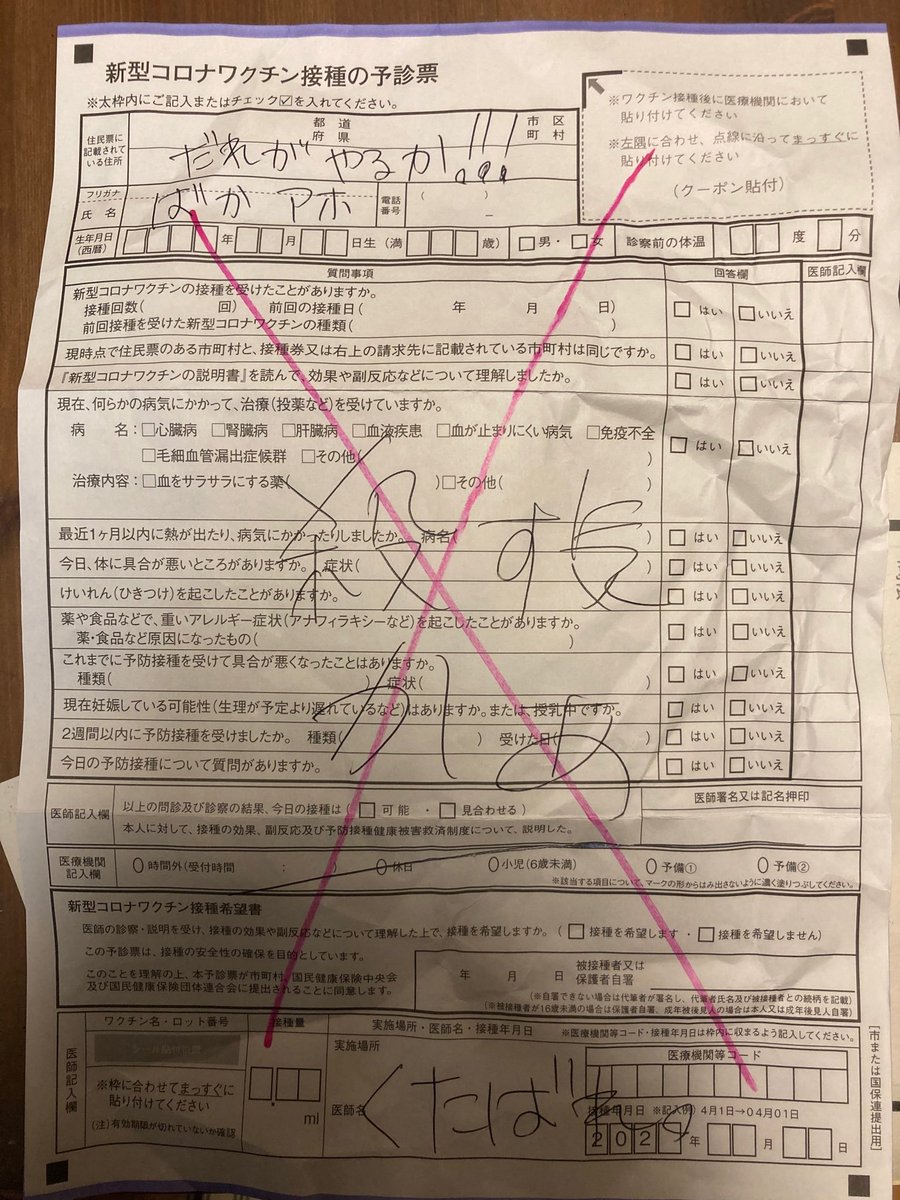 新型コロナワクチン接種の予診票
※太枠内にご記入またはチェック☑を入れてください。
住民票に記載されている住所
都道府県
市区町村
だれがやるか!!!
フリガナ
氏名
ばか アホ
電話番号
( )
−
※ワクチン接種後に医療機関において
貼り付けてください
※左隅に合わせ、点線に沿ってまっすぐに
貼り付けてください
(クーポン貼付)
生年月日(西暦)
年 月 日生 (満 歳)
□男・□女
診察前の体温 度 分
質問事項 回答欄 医師記入欄
新型コロナワクチンの接種を受けたことがありますか。
接種回数( 回) 前回の接種日( 年 月 日)
前回接種を受けた新型コロナワクチンの種類( )
□はい □いいえ
現時点で住民票のある市町村と、接種券又は右上の請求先に記載されている市町村は同じですか。 □はい □いいえ
『新型コロナワクチンの説明書』を読んで、効果や副反応などについて理解しましたか。 □はい □いいえ
現在、何らかの病気にかかって、治療(投薬など)を受けていますか。
病名:□心臓病 □腎臓病 □肝臓病 □血液疾患 □血が止まりにくい病気 □免疫不全
□毛細血管漏出症候群 □その他( )
治療内容:□血をサラサラにする薬( ) □その他( )
□はい □いいえ
最近1ヶ月以内に熱が出たり、病気にかかったりしましたか。 病名( ) □はい □いいえ
今日、体に具合が悪いところがありますか。 症状( ) □はい □いいえ
けいれん(ひきつけ)を起こしたことがありますか。 □はい □いいえ
薬や食品などで、重いアレルギー症状(アナフィラキシーなど)を起こしたことがありますか。
薬・食品など原因になったもの( )
□はい □いいえ
これまでに予防接種を受けて具合が悪くなったことはありますか。
種類( ) 症状( )
□はい □いいえ
現在妊娠している可能性(生理が予定より遅れているなど)はありますか。または、授乳中ですか。 □はい □いいえ
2週間以内に予防接種を受けましたか。 種類( ) 受けた日( ) □はい □いいえ
今日の予防接種について質問がありますか。 □はい □いいえ
医師記入欄
以上の問診及び診察の結果、今日の接種は(□可能・□見合わせる)
本人に対して、接種の効果、副反応及び予防接種健康被害救済制度について、説明した。
医師署名又は記名押印
医療機関記入欄
時間外(受付時間 ) 休日 小児(6歳未満) 予備① 予備②
※該当する項目について、マークの形からはみ出さないように濃く塗りつぶしてください。
新型コロナワクチン接種希望書
医師の診察・説明を受け、接種の効果や副反応などについて理解した上で、接種を希望しますか。(□接種を希望します・□接種を希望しません)
この予診票は、接種の安全性の確保を目的としています。
このことを理解の上、本予診票が市町村、国民健康保険中央会
及び国民健康保険団体連合会に提出されることに同意します。
年 月 日
被接種者又は
保護者自署
(※自署できない場合は代筆者が署名し、代筆者氏名及び被接種者との続柄を記載)
(※被接種者が16歳未満の場合は保護者自署、成年被後見人の場合は本人又は成年後見人自署)
医師記入欄
ワクチン名・ロット番号
接種量
実施場所・医師名・接種年月日
※医療機関等コード・接種年月日は枠内に収まるよう記入してください。
※枠に合わせてまっすぐに
貼り付けてください
(注)有効期限が切れていないか確認
ml
実施場所
医師名
くたばれ
医療機関等コード
接種年月日 ※記入例)4月1日→04月01日
202 年 月 日
[市または国保連提出用]